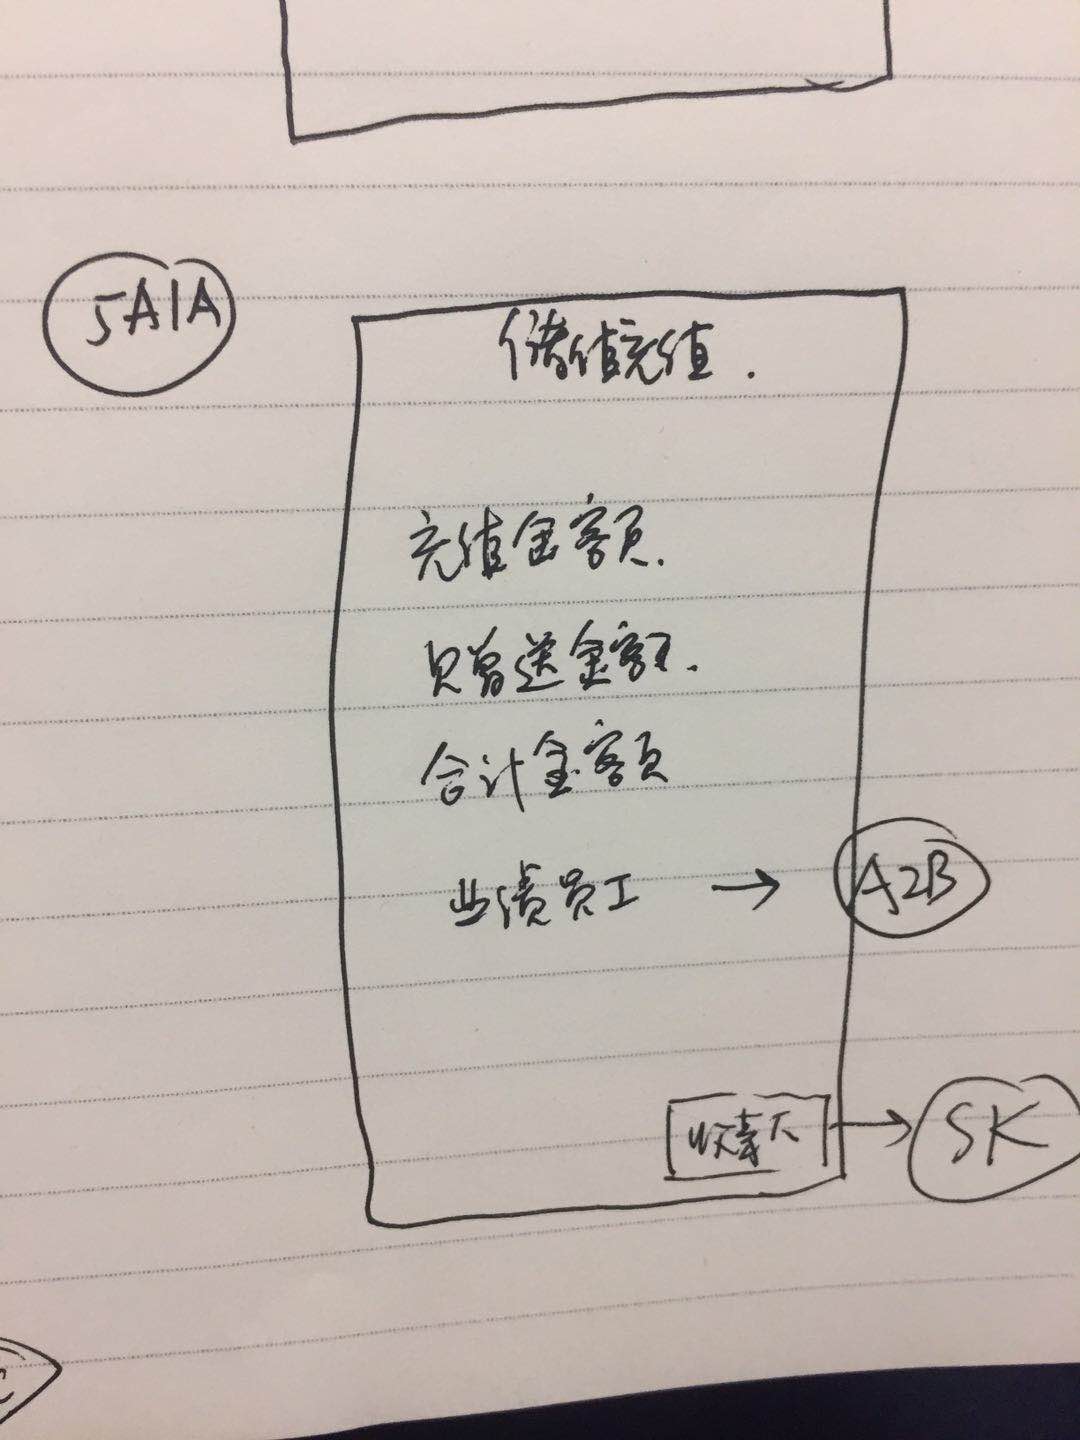 5A1A
储值充值.
充值金额.
赠送金额.
合计金额
业绩员工 → A2B
收款 → SK